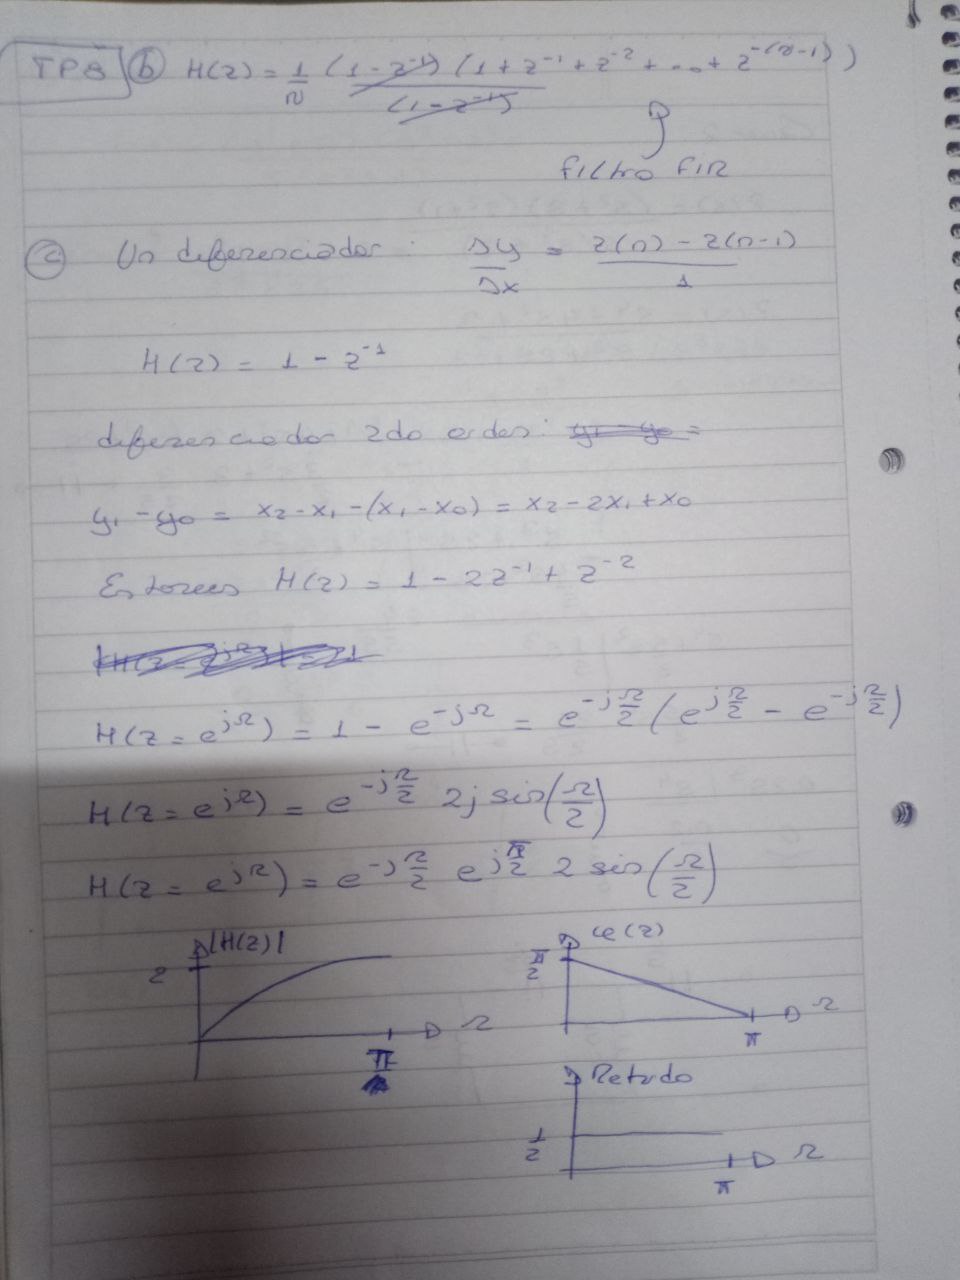 TP8 b) H(z) = 1/n (1-z⁻¹) (1 + z⁻¹ + z⁻² + ... + z^-(n-1)) / (1-z⁻¹)
filtro FIR
c) Un diferenciador: Δy/Δx = (z(n) - z(n-1))/1
H(z) = 1 - z⁻¹
diferenciador 2do orden: y₁ - y₀ =
y₁ - y₀ = x₂ - x₁ - (x₁ - x₀) = x₂ - 2x₁ + x₀
Entonces H(z) = 1 - 2z⁻¹ + z⁻²
H(z = e^jΩ) = 1 - e^-jΩ = e^-jΩ/2 (e^jΩ/2 - e^-jΩ/2)
H(z = e^jΩ) = e^-jΩ/2 2j sin(Ω/2)
H(z = e^jΩ) = e^-jΩ/2 e^jπ/2 2 sin(Ω/2)
|H(z)|
2
Ω
π
φ(z)
π/2
Ω
π
Retardo
1/2
Ω
π